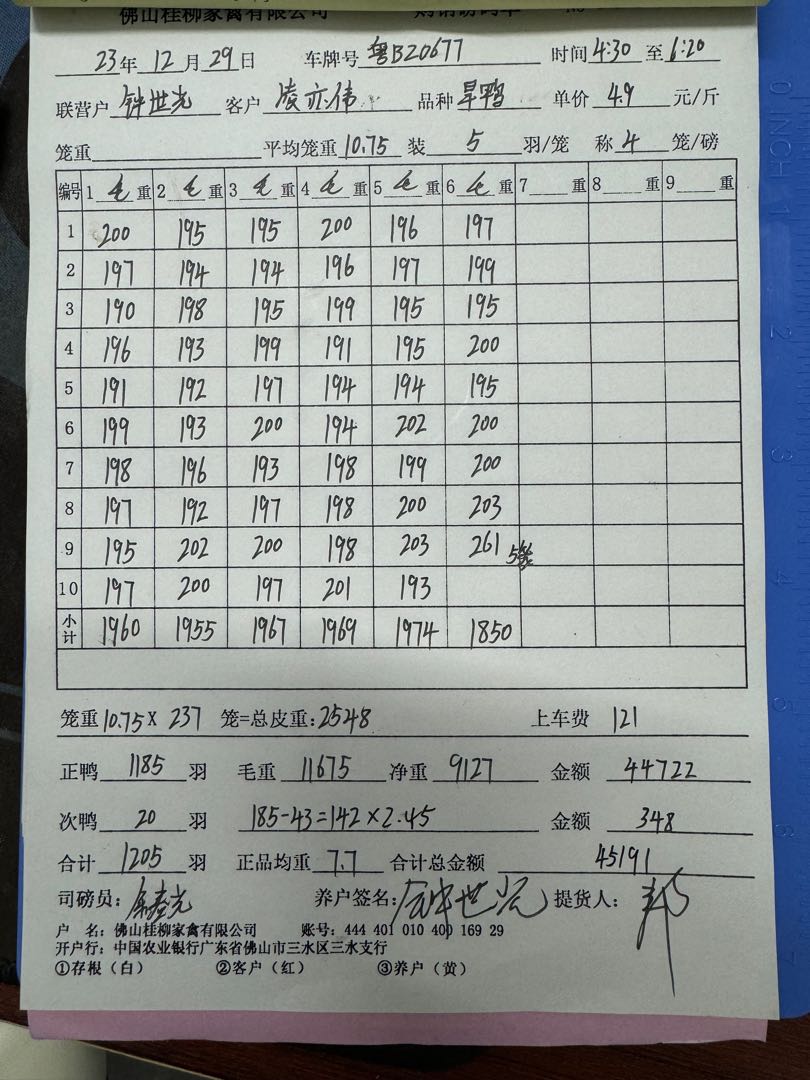 佛山桂柳家禽有限公司
23年 12 月 29 日 车牌号 粤B20677 时间 4:30 至 6:20
联营户 钟世光 客户 凌亦伟 品种 旱鸭 单价 4.9 元/斤
笼重 平均笼重 10.75 装 5 羽/笼 称 4 笼/磅
编号 1 毛 重 2 毛 重 3 毛 重 4 毛 重 5 毛 重 6 毛 重 7 重 8 重 9 重
1 200 195 195 200 196 197
2 197 194 194 196 197 199
3 190 198 195 199 195 195
4 196 193 199 191 195 200
5 191 192 197 194 194 195
6 199 193 200 194 202 200
7 198 196 193 198 199 200
8 197 192 197 198 200 203
9 195 202 200 198 203 261 5笼
10 197 200 197 201 193
小计 1960 1955 1967 1969 1974 1850
笼重 10.75 X 237 笼=总皮重: 2548 上车费 121
正鸭 1185 羽 毛重 11675 净重 9127 金额 44722
次鸭 20 羽 185-43=142×2.45 金额 348
合计 1205 羽 正品均重 7.7 合计总金额 45191
司磅员: 养户签名: 钟世光 提货人:
户 名: 佛山桂柳家禽有限公司 账号: 444 401 010 400 169 29
开户行: 中国农业银行广东省佛山市三水区三水支行
①存根（白） ②客户（红） ③养户（黄）
0 INCH 1
2
3
4
5
6
7